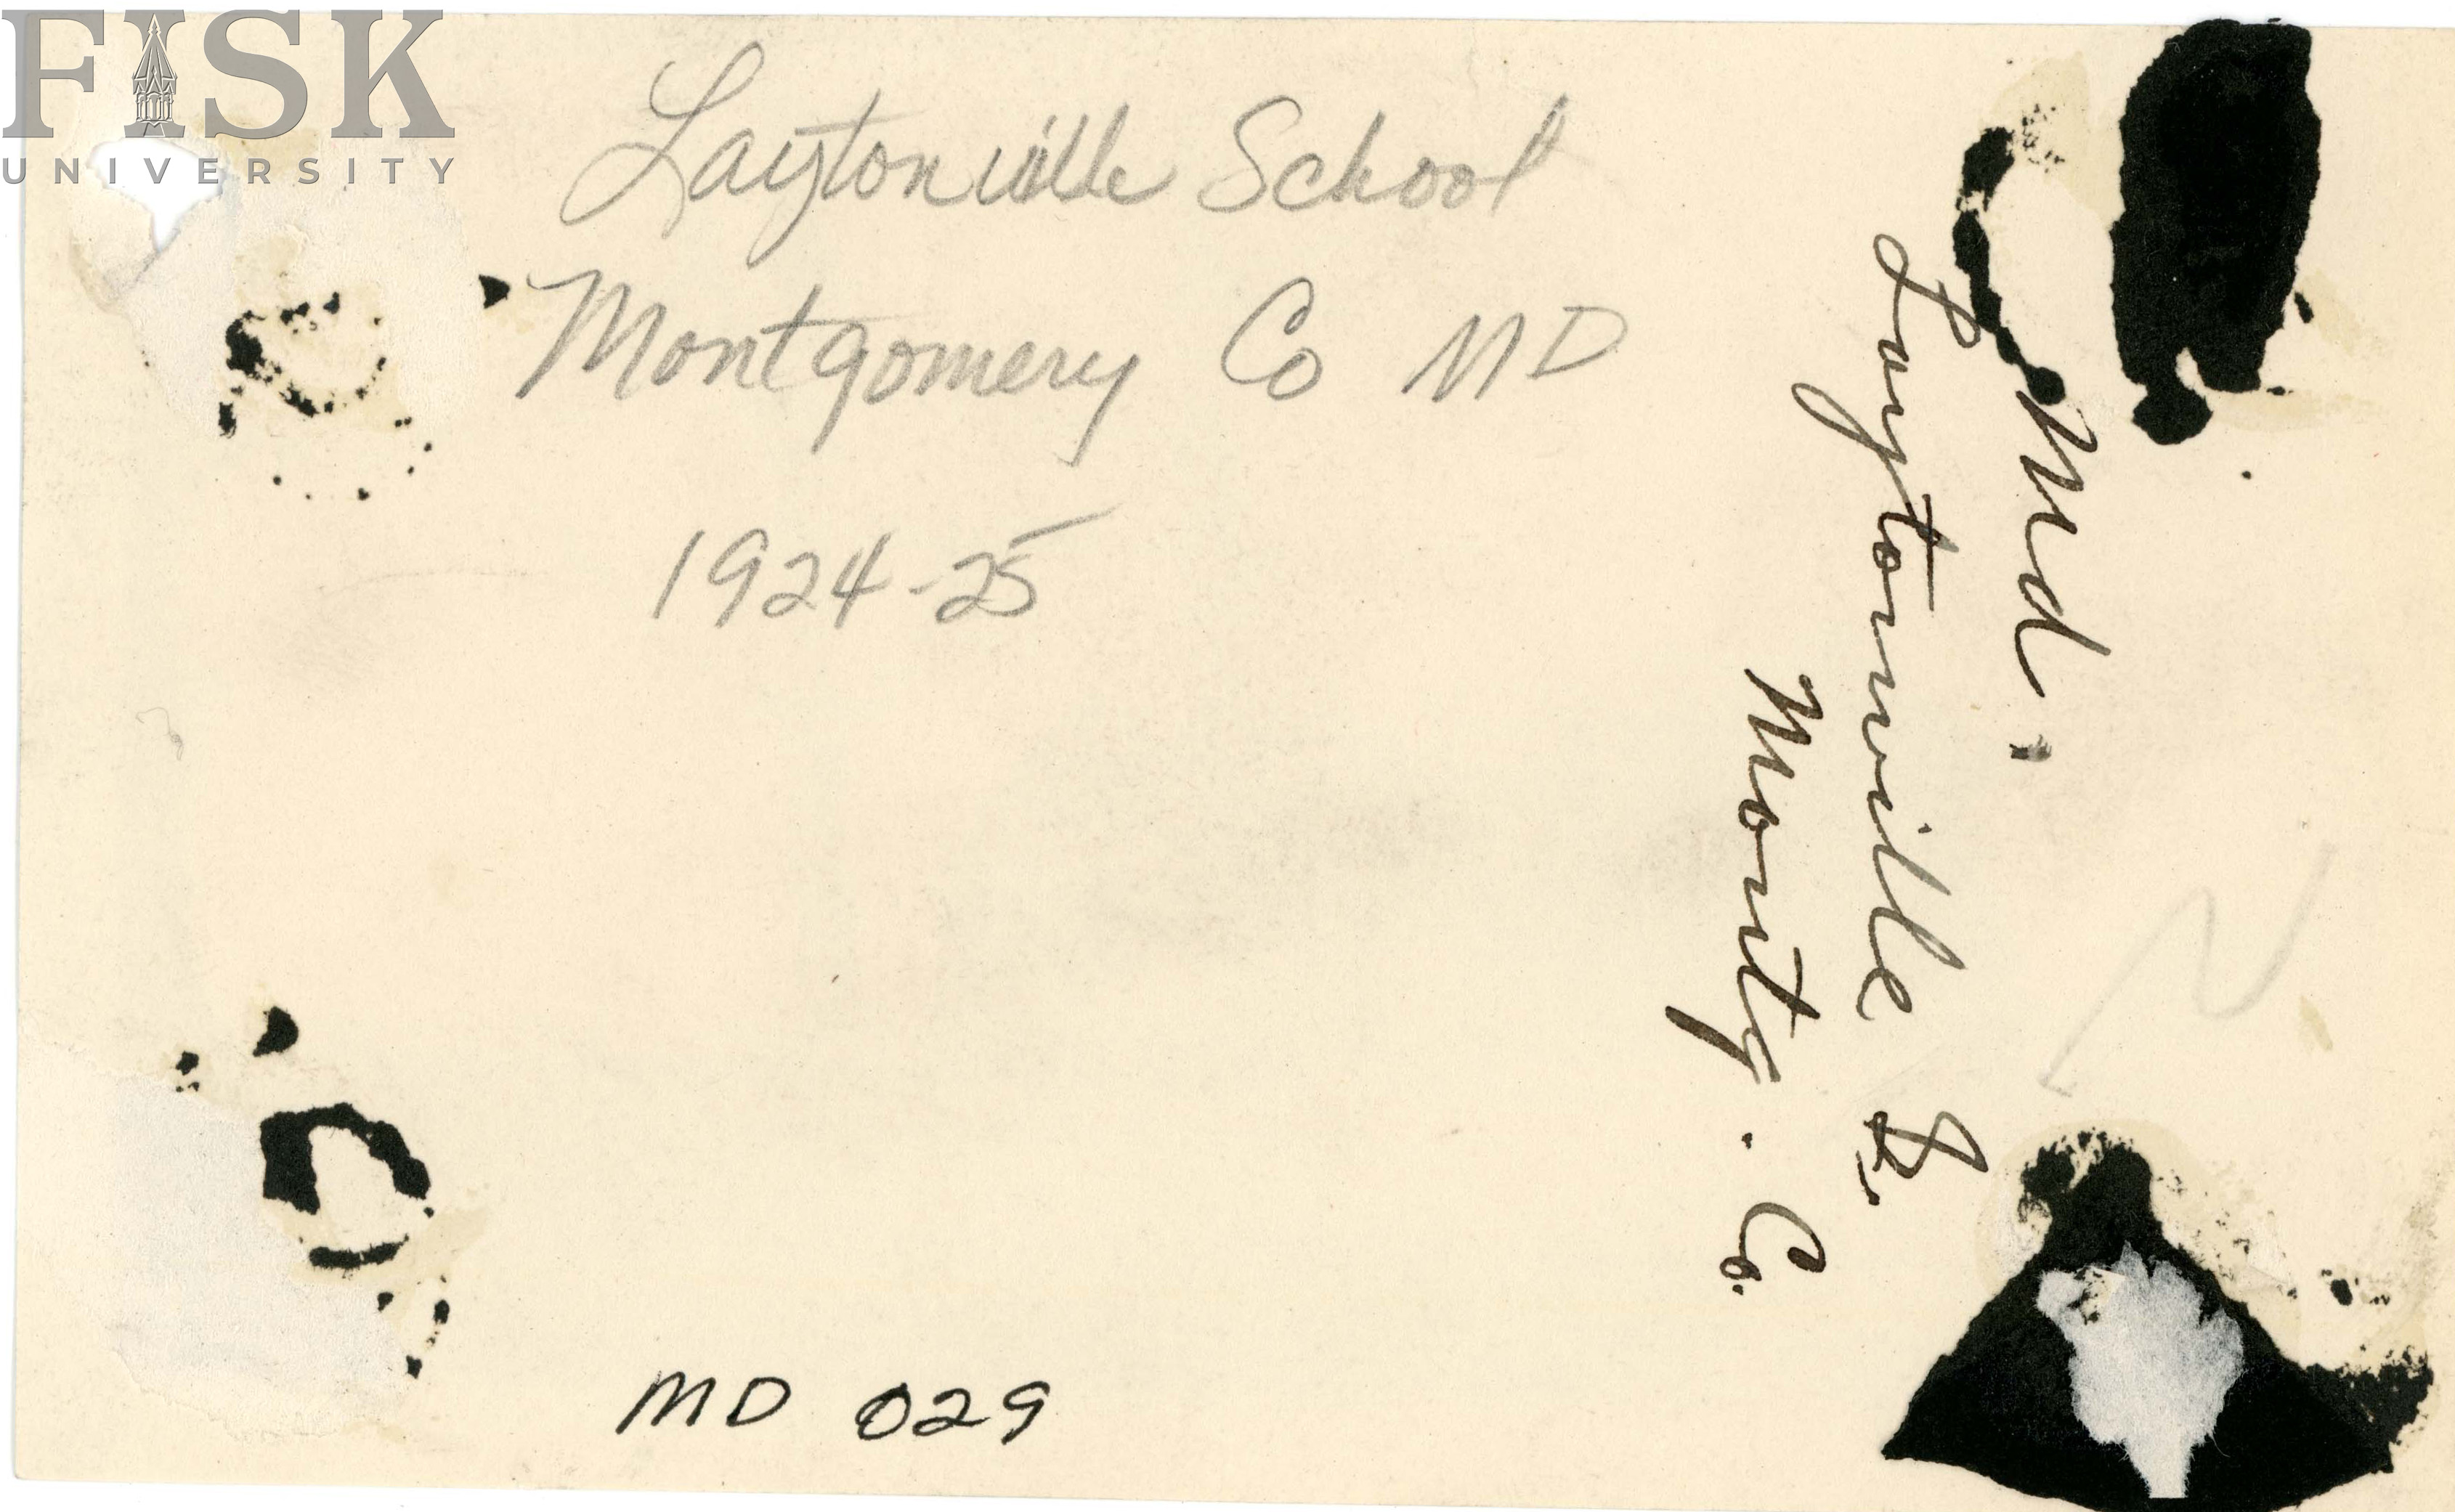 FISK
UNIVERSITY
Laytonville School
Montgomery Co MD
1924-25
Md.
Laytonville
Montg. Co.
MD 029